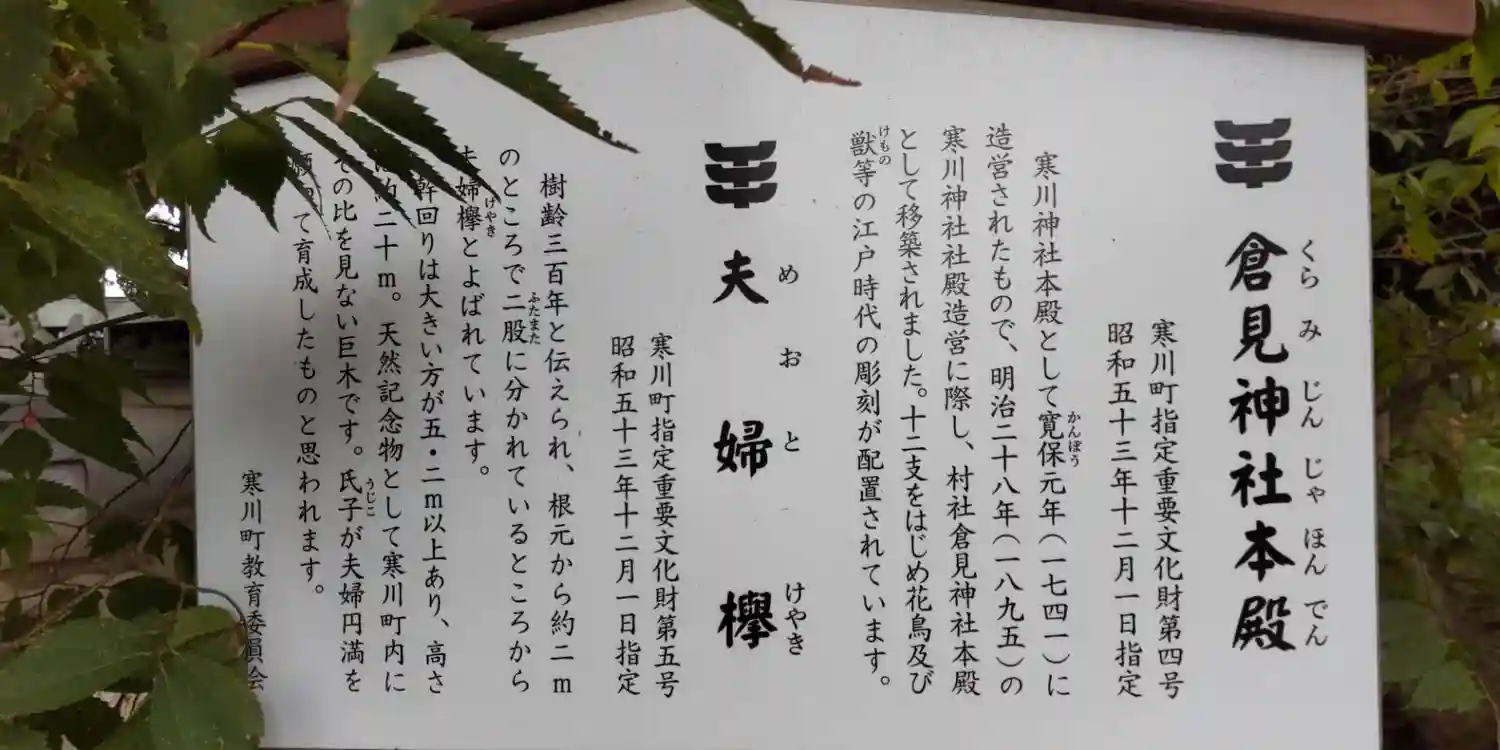 倉見神社本殿
くらみじんじゃほんでん
寒川町指定重要文化財第四号
昭和五十三年十二月一日指定
寒川神社本殿として寛保元年(一七四一)に
かんぽう
造営されたもので、明治二十八年(一八九五)の
寒川神社社殿造営に際し、村社倉見神社本殿
として移築されました。十二支をはじめ花鳥及び
獣等の江戸時代の彫刻が配置されています。
けもの
夫婦欅
めおとけやき
寒川町指定重要文化財第五号
昭和五十三年十二月一日指定
樹齢三百年と伝えられ、根元から約二m
のところで二股に分かれているところから
ふたまた
夫婦欅とよばれています。
けやき
幹回りは大きい方が五・二m以上あり、高さ
約二十m。天然記念物として寒川町内に
その比を見ない巨木です。氏子が夫婦円満を
うじこ
て育成したものと思われます。
寒川町教育委員会